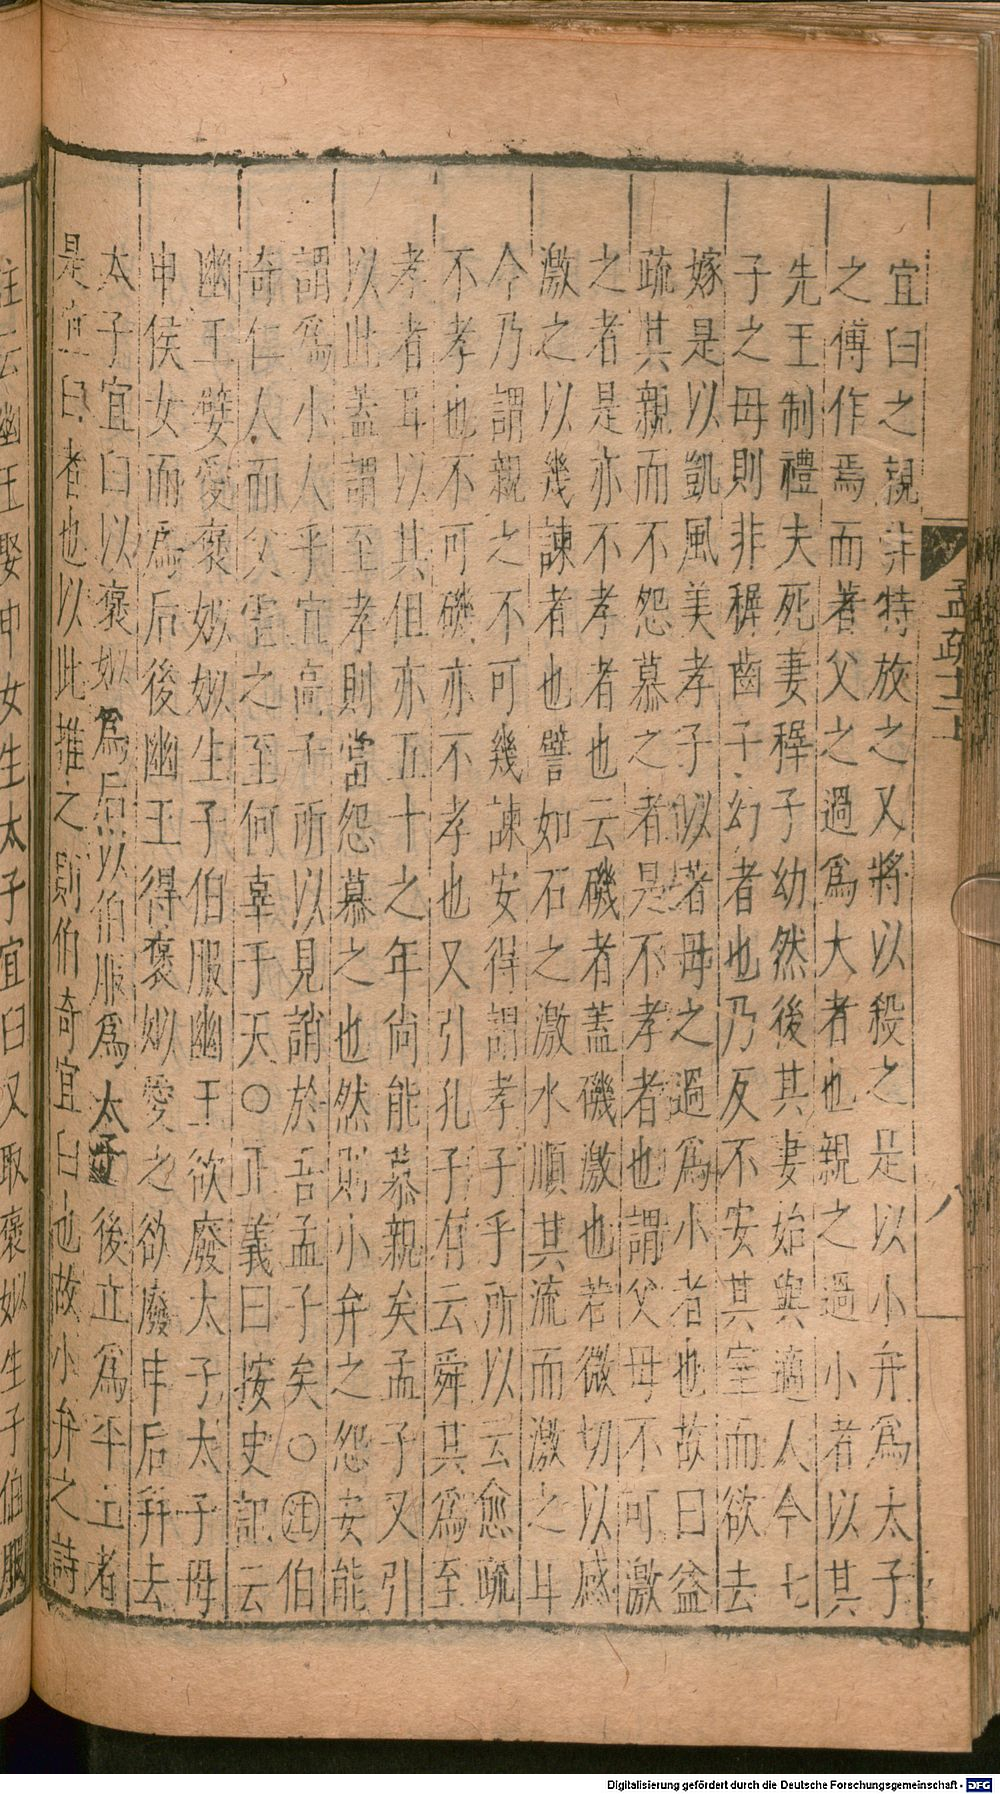 孟疏十二上 八
宜臼之親非特放之又將以殺之是以小弁爲太子
之傅作焉而著父之過爲大者也親之過小者以其
先王制禮夫死妻稺子幼然後其妻始與適人今七
子之母則非稺齒子幼者也乃反不安其室而欲去
嫁是以凱風美孝子以著母之過爲小者也故曰益
疏其親而不怨慕之者是不孝者也謂父母不可激
之者是亦不孝者也云磯者蓋磯激也若微切以感
激之以幾諫者也譬如石之激水順其流而激之耳
今乃謂親之不可幾諫安得謂孝子乎所以云愈疏
不孝也不可磯亦不孝也又引孔子有云舜其爲至
孝者耳以其但亦五十之年尚能慕親矣孟子又引
以此蓋謂至孝則當怨慕之也然則小弁之怨安能
謂爲小人乎宜高子所以見誚於吾孟子矣○注伯
奇仁人而父虐之至何辜于天○正義曰按史記云
幽王嬖愛褒姒姒生子伯服幽王欲廢太子太子母
申侯女而爲后後幽王得褒姒愛之欲廢申后并去
太子宜臼以褒姒爲后以伯服爲太子後立爲平王者
是宜臼者也以此推之則伯奇宜臼也故小弁之詩
注云幽王娶申女生太子宜臼又取褒姒生子伯服
Digitalisierung gefördert durch die Deutsche Forschungsgemeinschaft - DFG